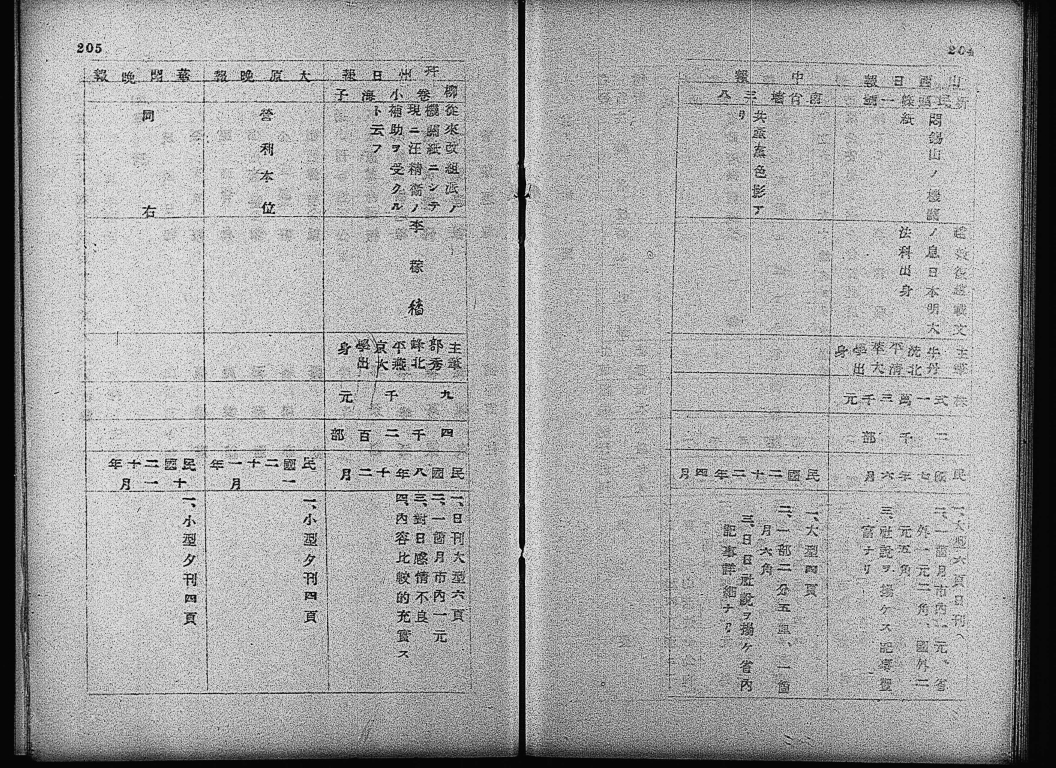 204
山西日報
新民頭條一號
株紙
閻錫山ノ機關
趙效復遠戰文
ノ息日本明大
法科出身
主筆
牛丹
洗北
平清
華大
學出
身
株式一萬三千元
二千部
民國七年六月
一、大型六頁日刊、
二、一箇月市內一元、省
外一元二角、國外二
元五角
三、社說ヲ揚ケス記事豐
富ナリ
中報
南肖墻三八
共產黨色影ア
リ
民國二十二年四月
一、大型四頁
二、一部二分五厘、一箇
月六角
三、日日社說ヲ揚ケ省內
記事詳細ナリ
205
并州日報
柳巷小海子
從來改組派ノ
機關紙ニシテ
現ニ汪精衛ノ
補助ヲ受クル
ト云フ
李稼穡
主筆
部秀
峰北
平燕
京大
學出
身
九千元
四千二百部
民國八年十二月
一、日刊大型六頁
二、一箇月市內一元
三、對日感情不良
四、內容比較的充實ス
太原晚報
營利本位
民國二十一年
一月
一、小型夕刊四頁
華聞晚報
同右
民國二十年
十一月
一、小型夕刊四頁